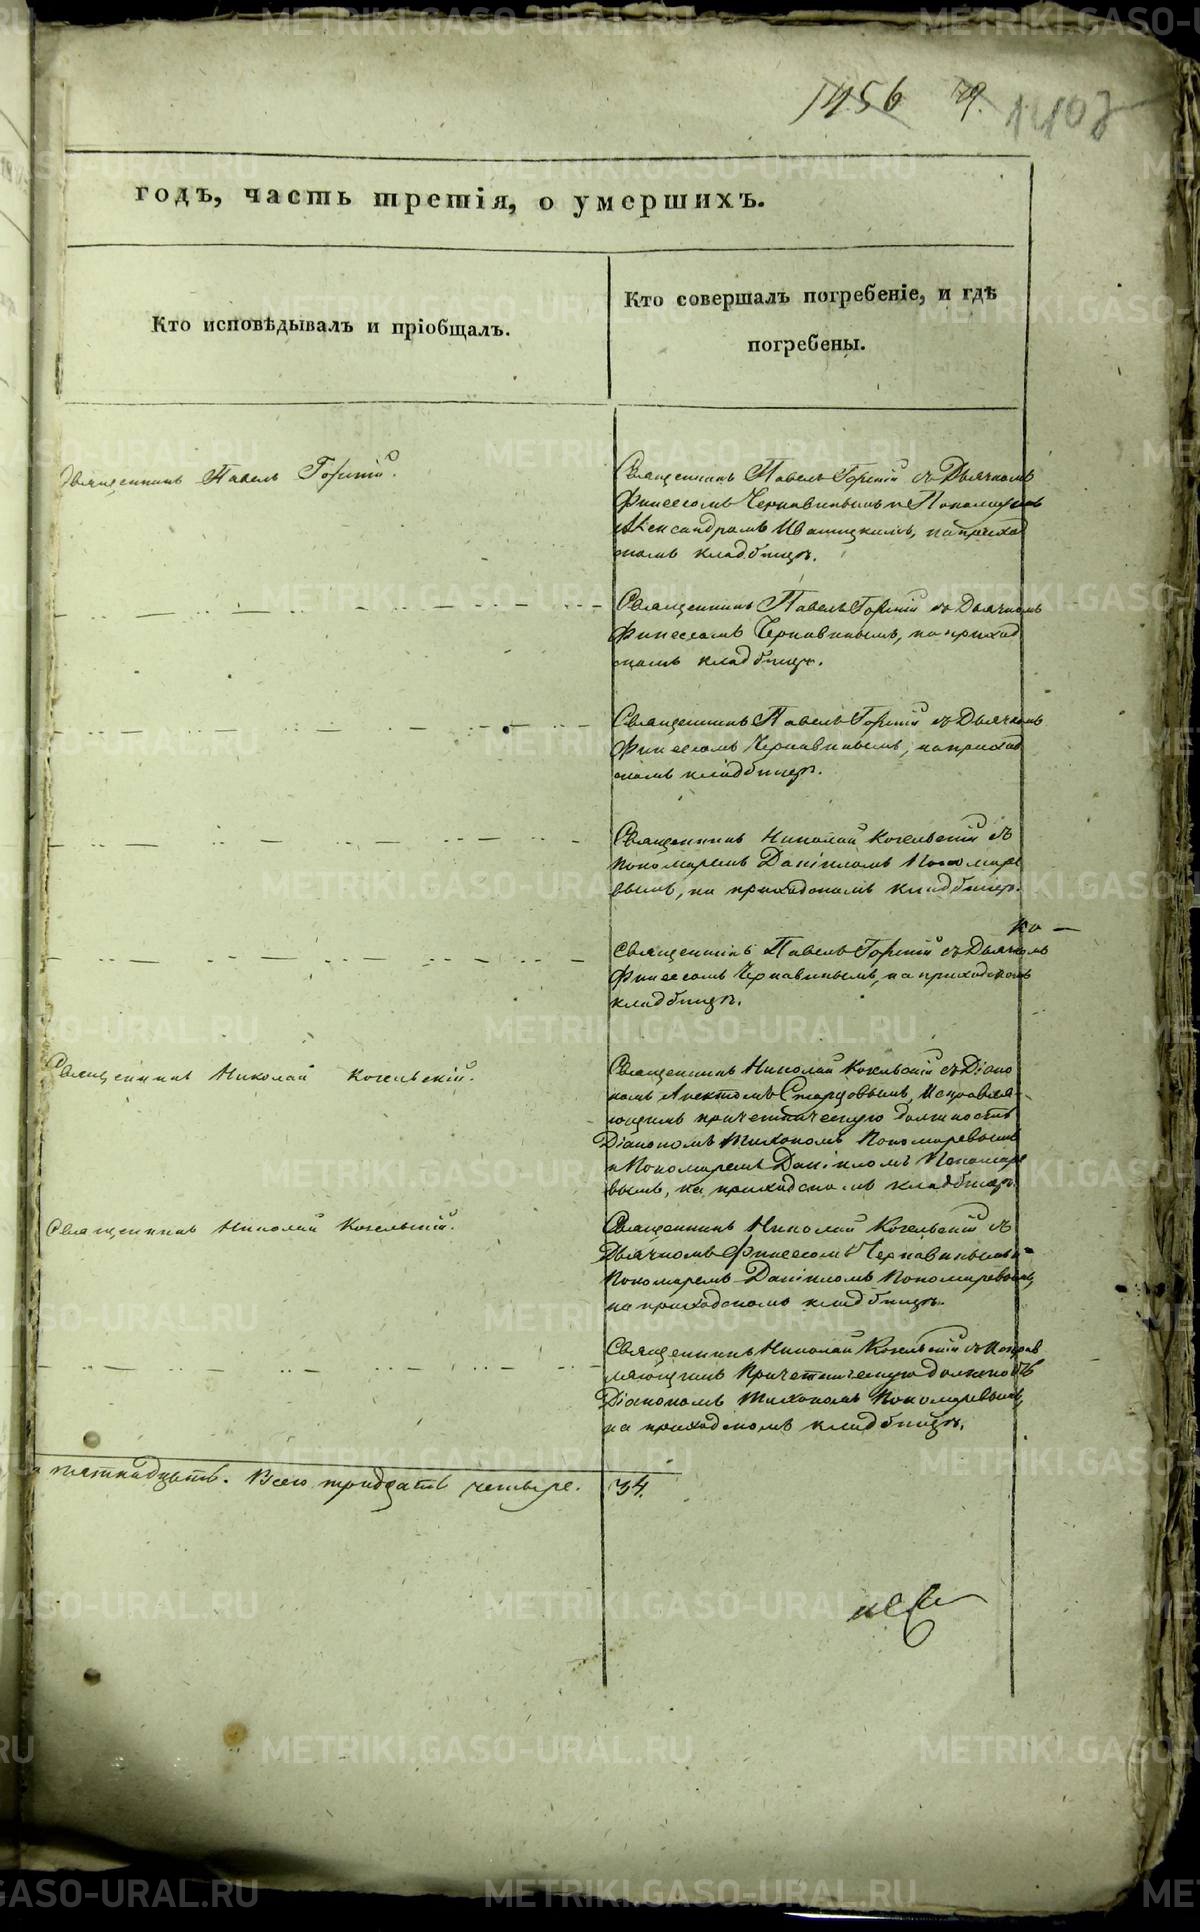 1456 79. 1403
годъ, часть третія, о умершихъ.
Кто исповѣдывалъ и пріобщалъ.
Кто совершалъ погребеніе, и гдѣ
погребены.
Священникъ Павелъ Горный.
Священникъ Павелъ Горный съ Дьячкомъ
Финеесомъ Чернавинымъ и Пономаремъ
Александромъ Иваницкимъ, на приход
скомъ кладбищѣ.
Священникъ Павелъ Горный съ Дьячкомъ
Финеесомъ Чернавинымъ, на приход
скомъ кладбищѣ.
Священникъ Павелъ Горный съ Дьячкомъ
Финеесомъ Чернавинымъ, на приход
скомъ кладбищѣ.
Священникъ Николай Когельскій съ
Пономаремъ Даніиломъ Пономаре
вымъ, на приходскомъ кладбищѣ.
ко —
Священникъ Павелъ Горный съ Дьячкомъ
Финеесомъ Чернавинымъ, на приходскомъ
кладбищѣ.
Священникъ Николай Когельскій.
Священникъ Николай Когельскій съ Діако
номъ Аектомъ Старцовымъ, Исправля-
ющимъ причетническую должность
Діакономъ Тихономъ Пономаревымъ
и Пономаремъ Даніиломъ Пономаре
вымъ, на приходскомъ кладбищѣ.
Священникъ Николай Когельскій.
Священникъ Николай Когельскій съ
Дьячкомъ Финеесомъ Чернавинымъ и
Пономаремъ Даніиломъ Пономаревымъ,
на приходскомъ кладбищѣ.
Священникъ Николай Когельскій съ Исправ
ляющимъ Причетническую должность
Діакономъ Тихономъ Пономаревымъ,
на приходскомъ кладбищѣ.
пятнадцать. Всего тридцать четыре.
34.